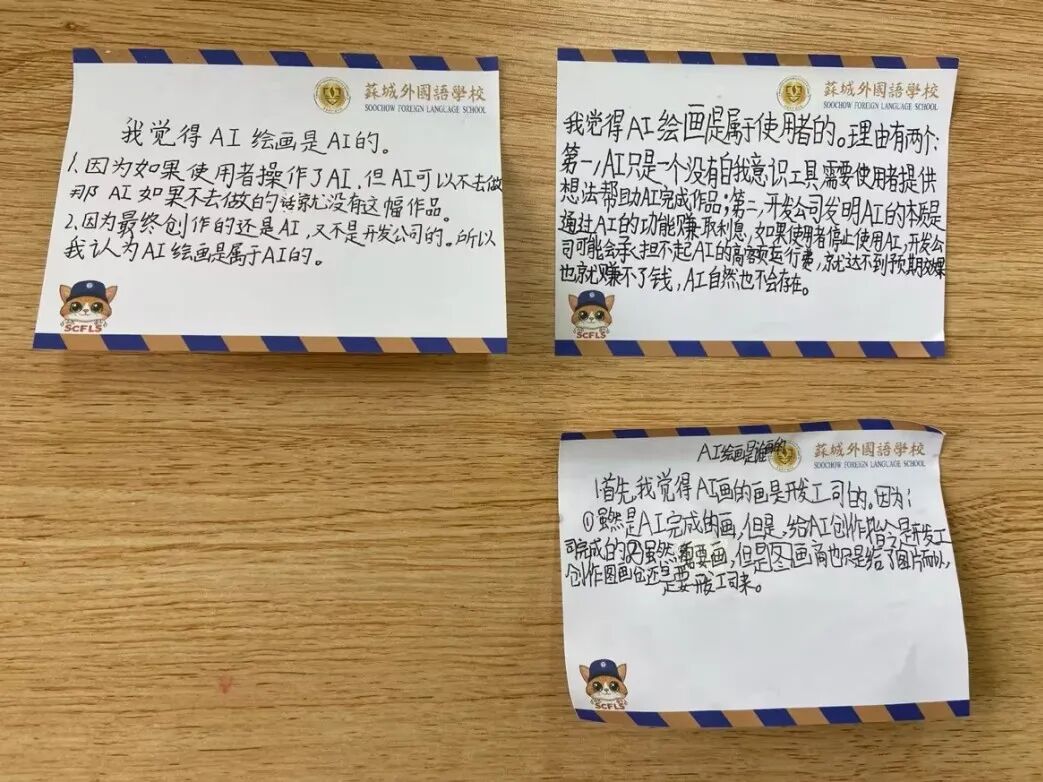 蘇城外國語學校
SOOCHOW FOREIGN LANGUAGE SCHOOL
我觉得AI绘画是AI的。
1.因为如果使用者操作了AI,但AI可以不去做
那AI如果不去做的话就没有这幅作品。
2.因为最终创作的还是AI,又不是开发公司的。所以
我认为AI绘画是属于AI的。
SCFLS
蘇城外國語學校
SOOCHOW FOREIGN LANGUAGE SCHOOL
我觉得AI绘画是属于使用者的。理由有两个:
第一,AI只是一个没有自我意识工具,需要使用者提供
想法帮助AI完成作品;第二,开发公司发明AI的本质是
通过AI的功能赚取利息,如果使用者停止使用AI,开发公
司可能会承担不起AI的高额运行费,就达不到预期效果
也就赚不了钱,AI自然也不会存在。
SCFLS
AI绘画是谁画的
蘇城外國語學校
SOOCHOW FOREIGN LANGUAGE SCHOOL
1.首先,我觉得AI画的画是开发工司的。因为:
①虽然是AI完成的画,但是,给AI创作指令是开发工
司完成的②虽然需要画,但是图画商也只是给了图片而以,
创作图画也还是要开发工司来。
SCFLS